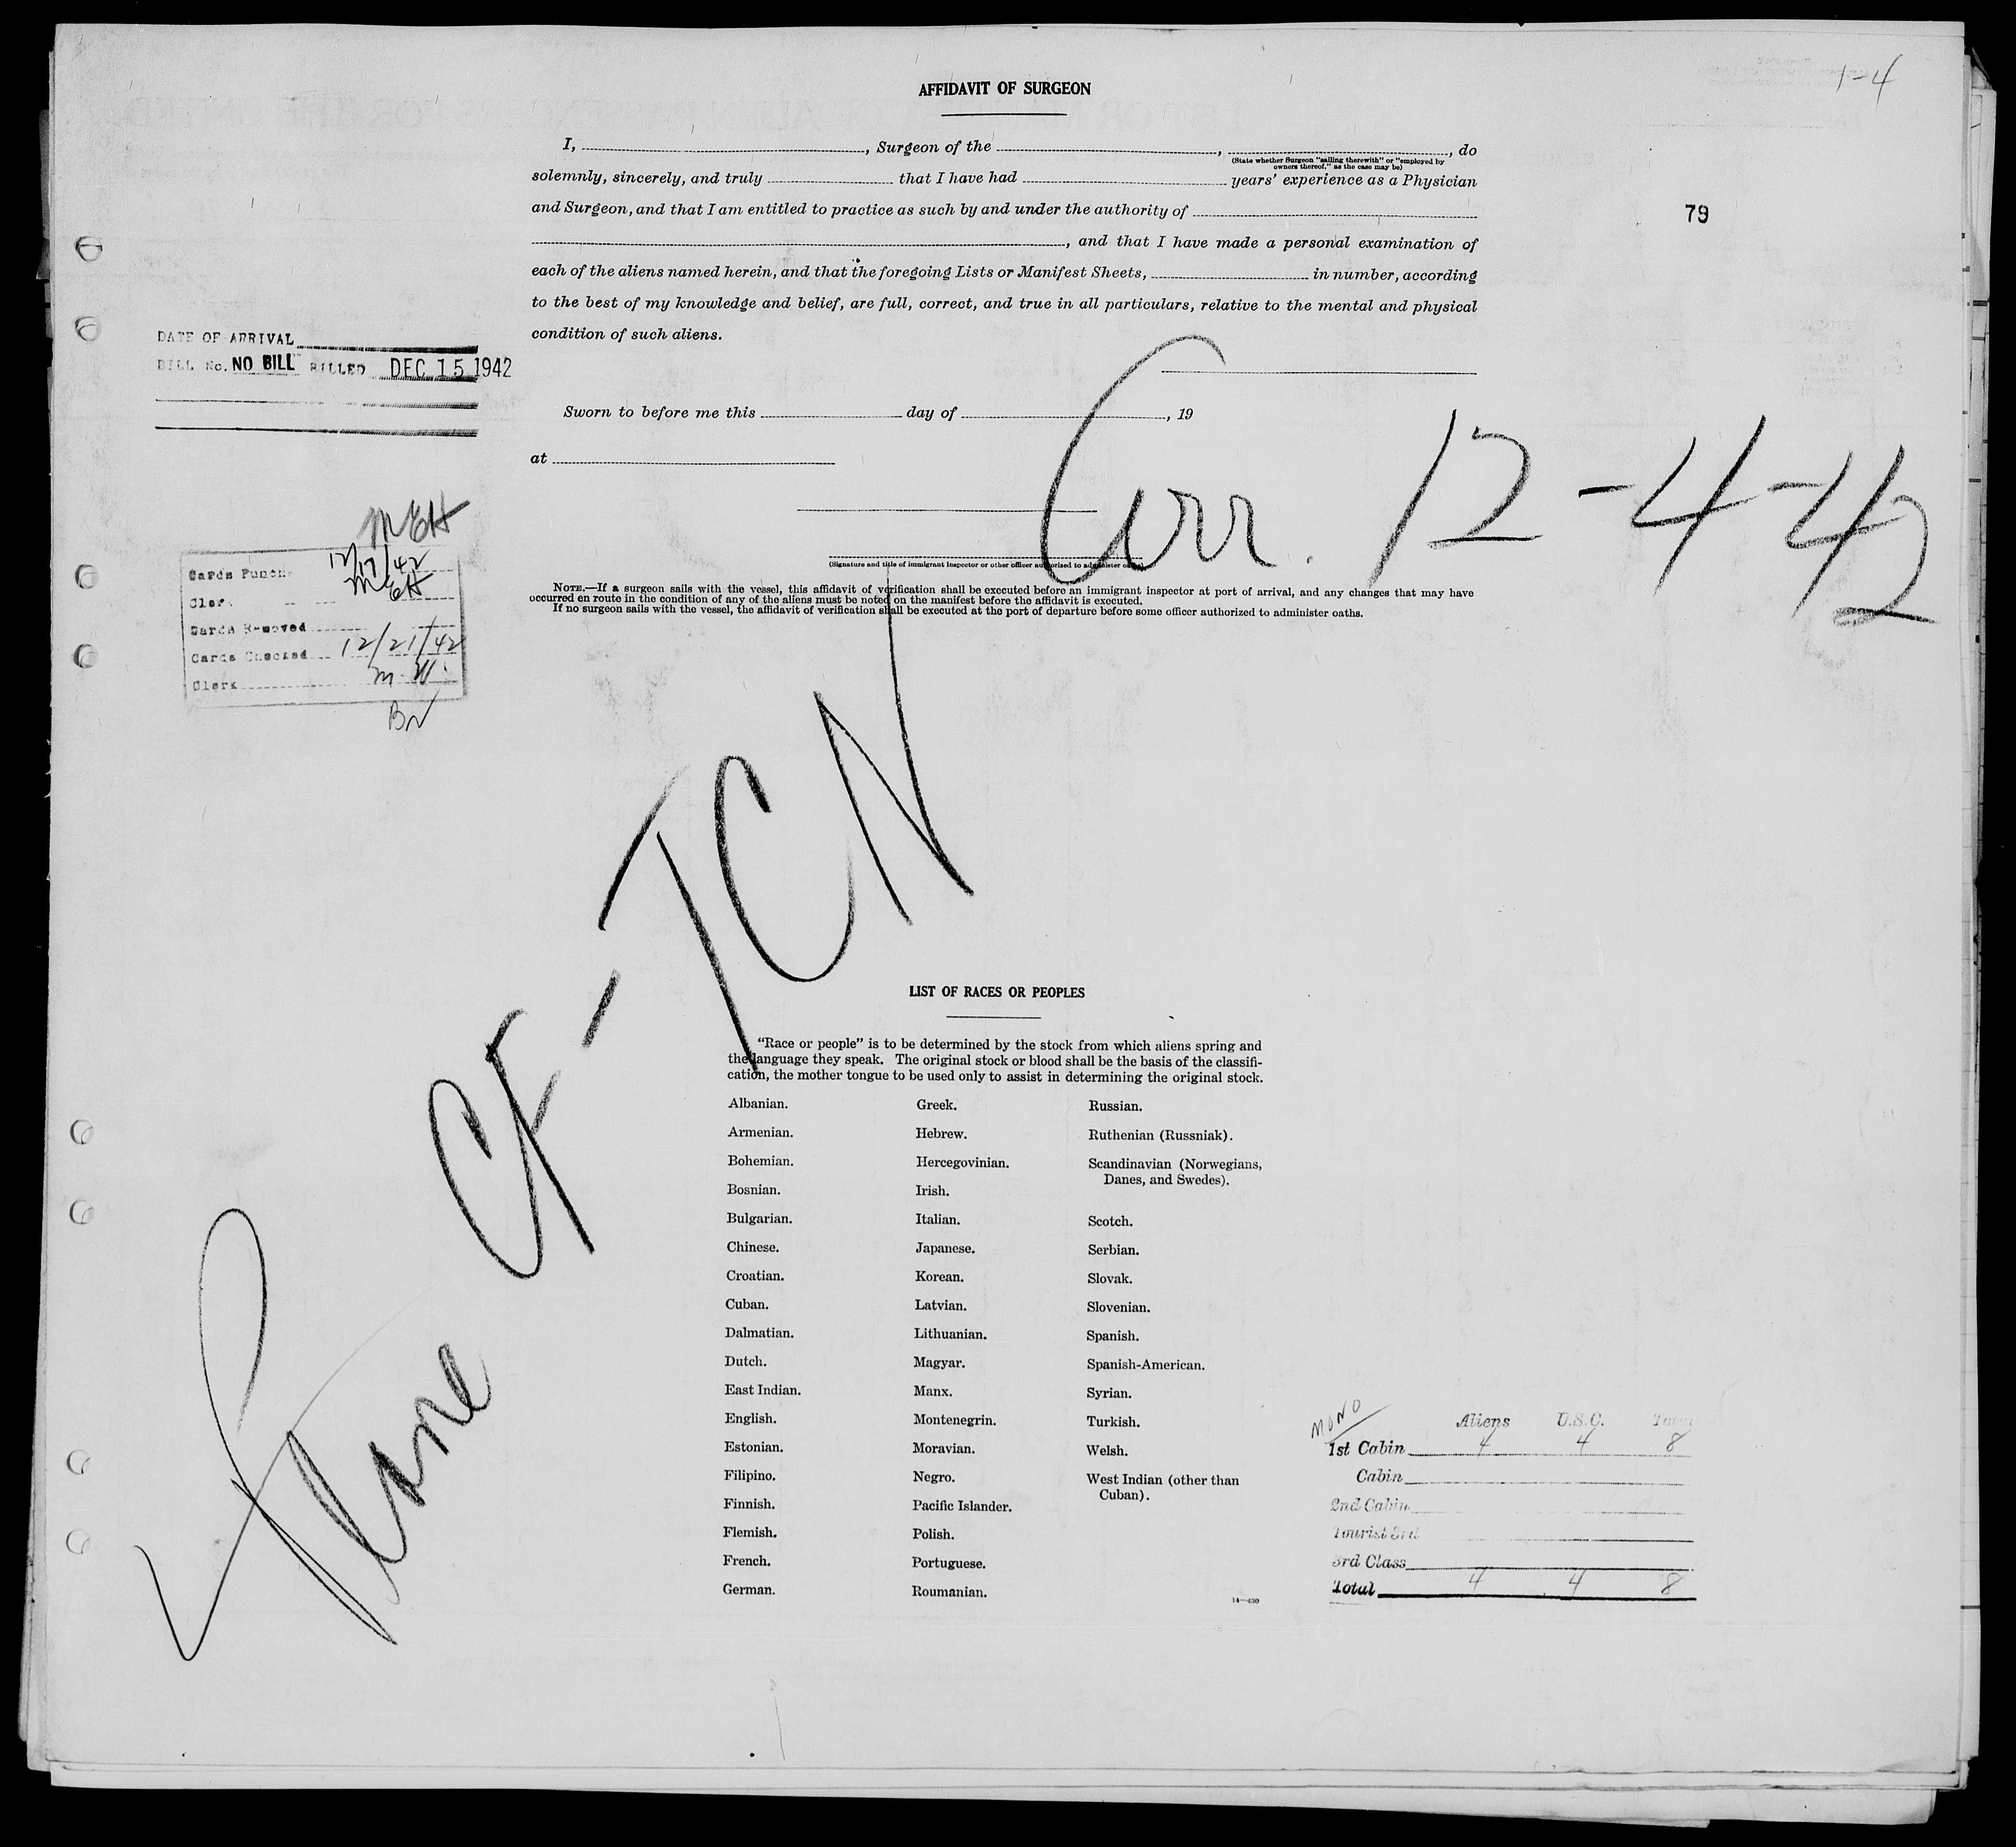 1-4
AFFIDAVIT OF SURGEON
I, , Surgeon of the , , do
(State whether Surgeon "sailing therewith" or "employed by
owners thereof," as the case may be)
solemnly, sincerely, and truly that I have had years' experience as a Physician
and Surgeon, and that I am entitled to practice as such by and under the authority of
79
, and that I have made a personal examination of
each of the aliens named herein, and that the foregoing Lists or Manifest Sheets, in number, according
to the best of my knowledge and belief, are full, correct, and true in all particulars, relative to the mental and physical
condition of such aliens.
DATE OF ARRIVAL
BILL No. NO BILL BILLED DEC 15 1942
Sworn to before me this day of , 19
at
Arr. 12-4-42
(Signature and title of immigrant inspector or other officer authorized to administer oaths)
NOTE.—If a surgeon sails with the vessel, this affidavit of verification shall be executed before an immigrant inspector at port of arrival, and any changes that may have
occurred en route in the condition of any of the aliens must be noted on the manifest before the affidavit is executed.
If no surgeon sails with the vessel, the affidavit of verification shall be executed at the port of departure before some officer authorized to administer oaths.
MEH
Cards Punch 12/17/42
Clerk MEH
Cards Removed
Cards Checked 12/21/42
Clerk M.W.
Plane CF-TCN
LIST OF RACES OR PEOPLES
"Race or people" is to be determined by the stock from which aliens spring and
the language they speak. The original stock or blood shall be the basis of the classifi-
cation, the mother tongue to be used only to assist in determining the original stock.
Albanian.
Armenian.
Bohemian.
Bosnian.
Bulgarian.
Chinese.
Croatian.
Cuban.
Dalmatian.
Dutch.
East Indian.
English.
Estonian.
Filipino.
Finnish.
Flemish.
French.
German.
Greek.
Hebrew.
Hercegovinian.
Irish.
Italian.
Japanese.
Korean.
Latvian.
Lithuanian.
Magyar.
Manx.
Montenegrin.
Moravian.
Negro.
Pacific Islander.
Polish.
Portuguese.
Roumanian.
Russian.
Ruthenian (Russniak).
Scandinavian (Norwegians,
Danes, and Swedes).
Scotch.
Serbian.
Slovak.
Slovenian.
Spanish.
Spanish-American.
Syrian.
Turkish.
Welsh.
West Indian (other than
Cuban).
14—430
MONO
Aliens U.S.C. Total
1st Cabin 4 4 8
Cabin
2nd Cabin
Tourist 3rd
3rd Class
Total 4 4 8